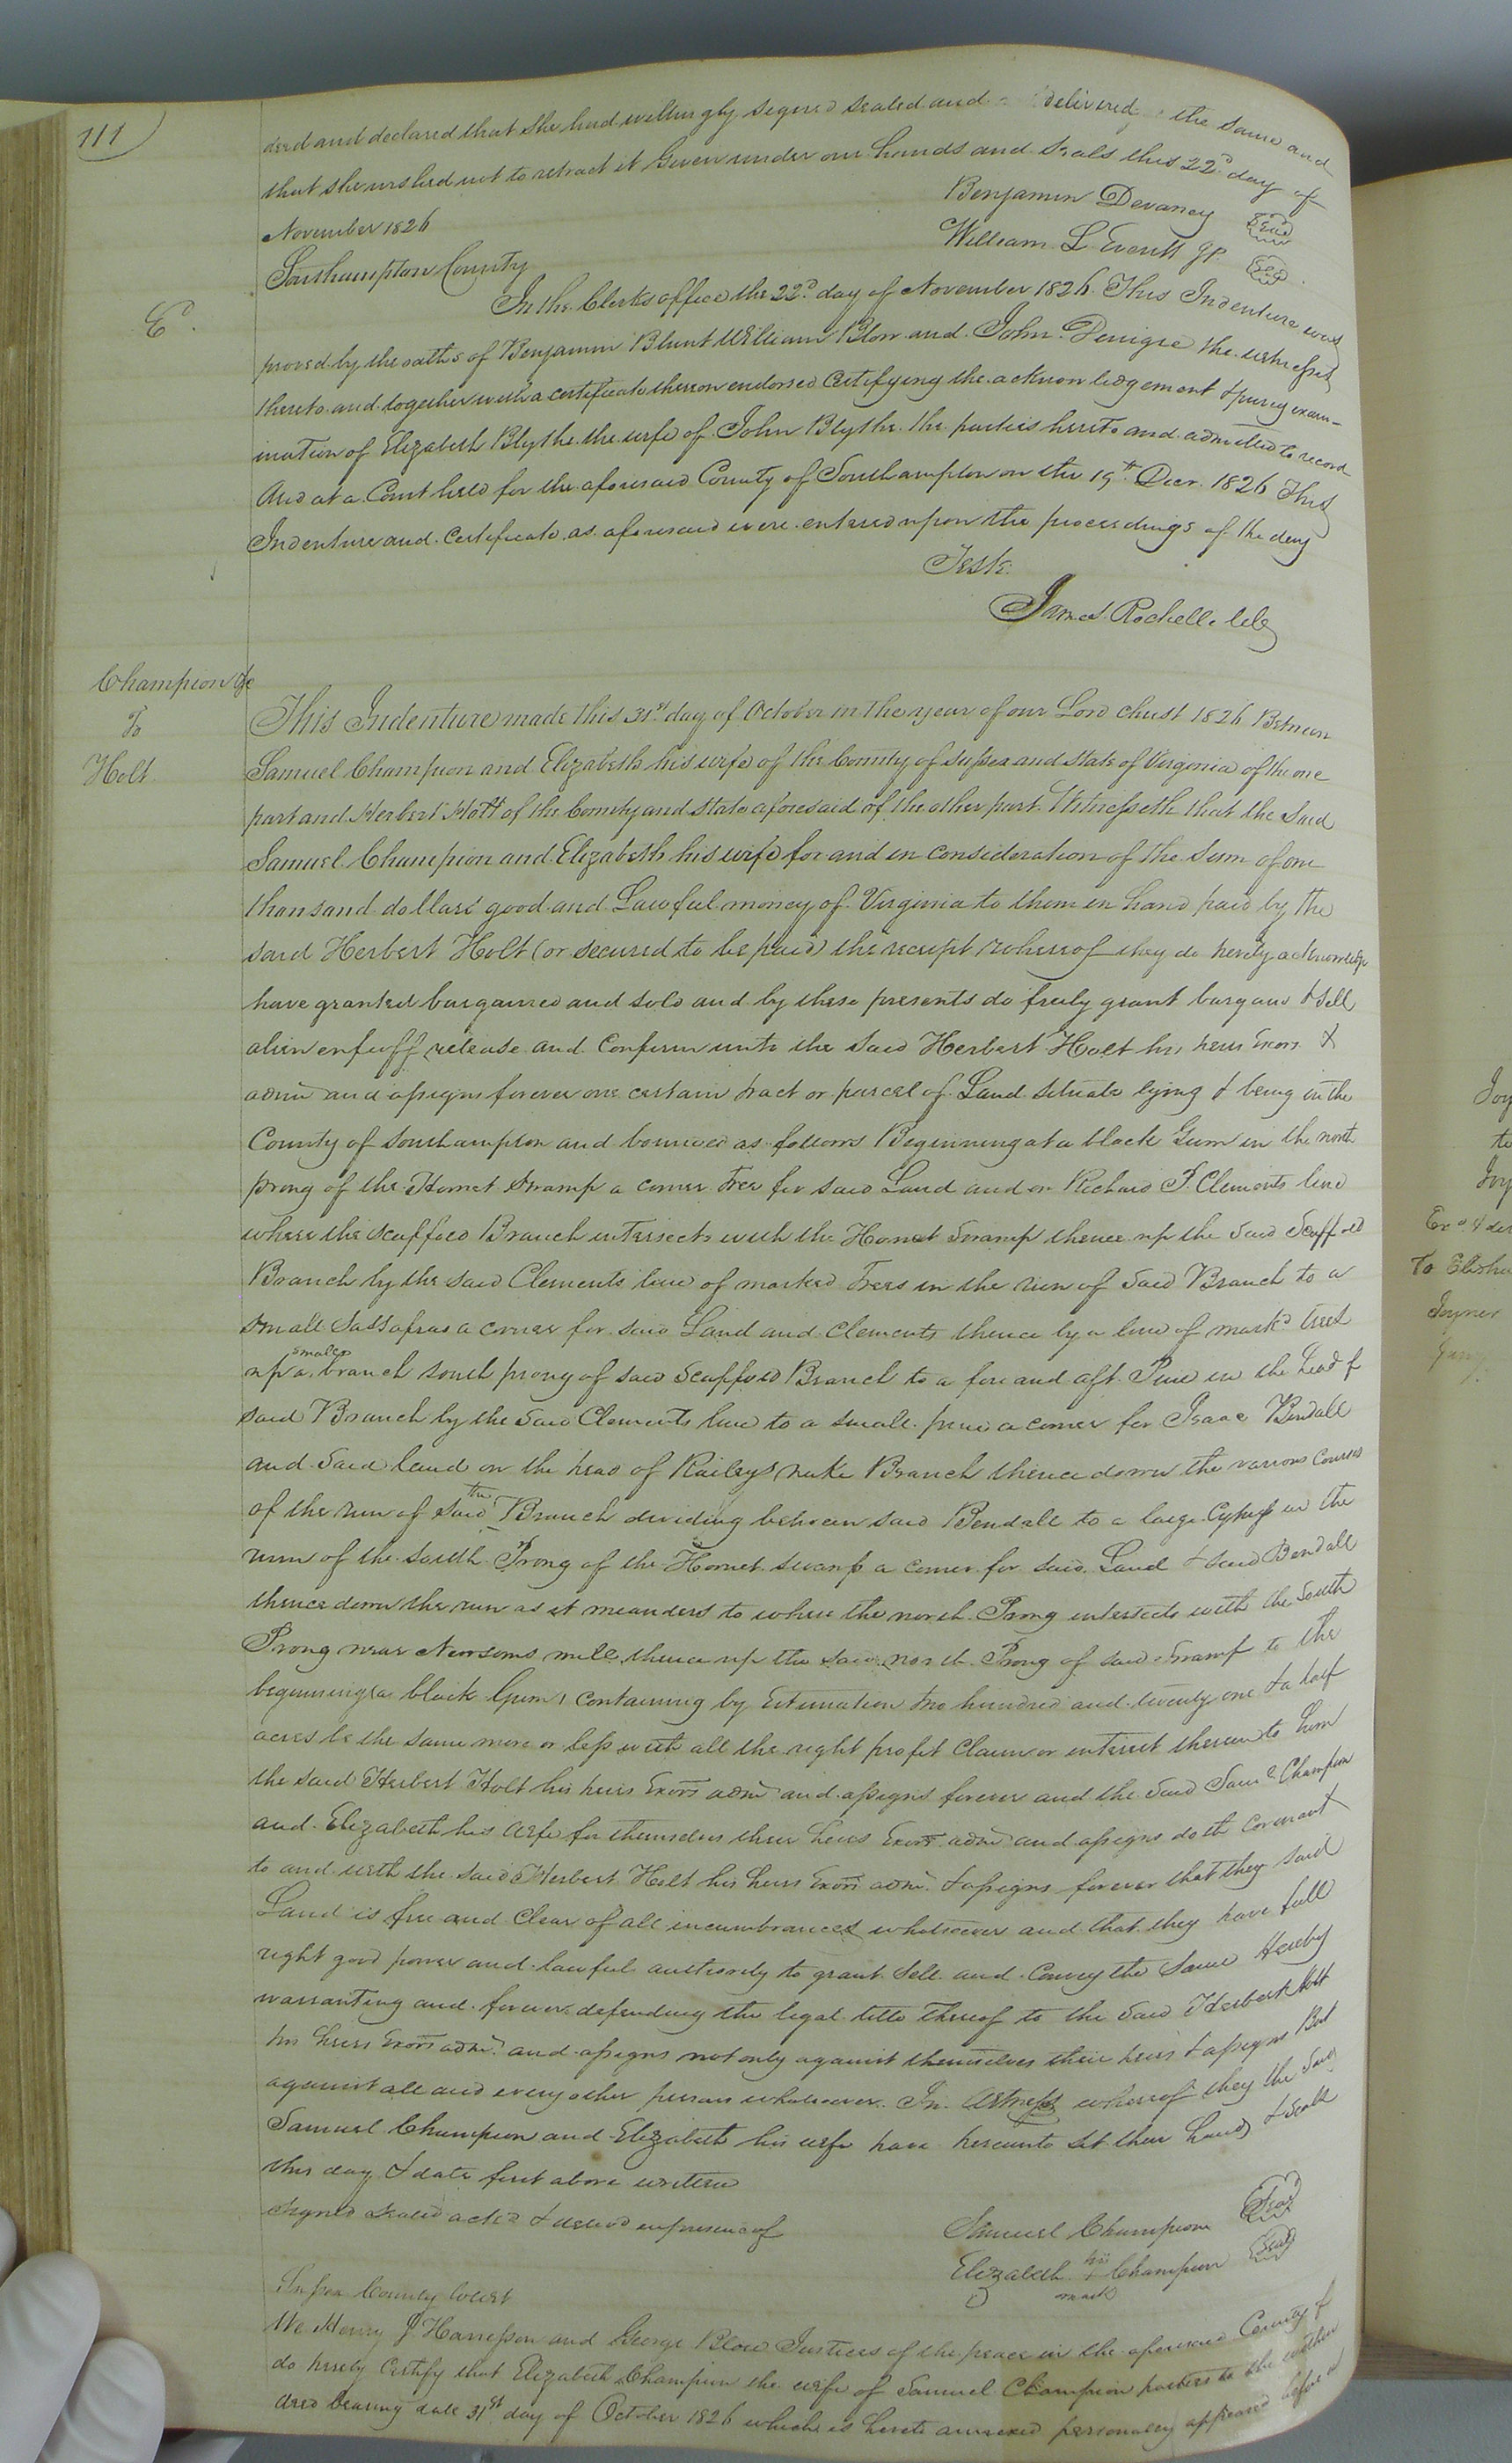 111
deed and declared that she had willingly signed sealed and delivered the same and
that she wished not to retract it Given under our hands and seals this 22d day of
November 1826
Benjamin Devaney Seal
William L Everitt jr. Seal
Southampton County
E.
In the Clerks office the 22d day of November 1826. This Indenture was
proved by the oaths of Benjamin Blunt William Blow and John the witnesses
thereto and together with a certificate thereon endorsed certifying the acknowledgement & privy exam-
ination of Elizabeth Blythe the wife of John Blythe the parties hereto and admitted to record
And at a Court held for the aforesaid County of Southampton on the 19th Decr. 1826 This
Indenture and certificate as aforesaid were entered upon the proceedings of the day
Teste.
James Rochelle Clk
Champion &c
To
Holt
This Indenture made this 31st day of October in the year of our Lord christ 1826 Between
Samuel Champion and Elizabeth his wife of the County of Sussex and State of Virginia of the one
part and Herbert Holt of the County and State aforesaid of the other part. Witnesseth that the Said
Samuel Champion and Elizabeth his wife for and in consideration of the Sum of one
thousand dollars good and Lawful money of Virginia to them in hand paid by the
said Herbert Holt (or secured to be paid) the receipt whereof they do hereby acknowledge
have granted bargained and sold and by these presents do freely grant bargain & sell
alien enfeoff release and Confirm unto the Said Herbert Holt his heirs Exors &
admr and assigns forever one certain tract or parcel of Land situate lying & being in the
County of Southampton and bounded as follows Beginning at a black Gum in the north
prong of the Hornet Swamp a corner Tree for said Land and on Richard F. Clements line
where the Scaffold Branch intersects with the Hornet Swamp thence up the Said Scaffold
Branch by the Said Clements line of marked Trees in the run of Said Branch to a
Small Sassafras a corner for said Land and Clements thence by a line of markd trees
up a small branch south prong of said Scaffold Branch to a fore and aft Pine in the head of
said Branch by the Said Clements line to a small pine a corner for Isaac Bendall
and Said land on the head of Raileys Branch thence down the various courses
of the run of Said the Branch dividing between said Bendall to a large Cypress in the
run of the South Prong of the Hornet swamp a corner for said Land & said Bendall
thence down the run as it meanders to where the north Prong intersects with the South
Prong near Newsoms mill thence up the said north Prong of said Swamp to the
beginning (a black Gum) containing by Estimation two hundred and twenty one & a half
acres be the same more or less with all the right profit Claim or interest therein to him
the said Herbert Holt his heirs Exors admr and assigns forever and the Said Saml Champion
and Elizabeth his wife for themselves their heirs Exors admr and assigns doth Covenant
to and with the said Herbert Holt his heirs Exors admr. & assigns forever that they said
Land is free and Clear of all incumbrances whatsoever and that they have full
right good power and lawful authority to grant Sell and Convey the Same Hereby
warranting and forever defending the legal title thereof to the Said Herbert Holt
his heirs Exors admr. and assigns not only against themselves their heirs & assigns But
against all and every other person whatsoever. In Witness whereof they the Said
Samuel Champion and Elizabeth his wife have hereunto set their hands & seals
this day & date first above written
Signed sealed ackd & delivd in presence of
Samuel Champion Seal
his
Elizabeth + Champion Seal
mark
Sussex County Court
We Henry J. Harrisson and George Blow Justices of the peace in the aforesaid County of
do hereby Certify that Elizabeth Champion the wife of Samuel Champion parties to the within
deed bearing date 31st day of October 1826 which is hereto annexed personally appeared before us
Joy
to
Joy
To Elisha
Joyner